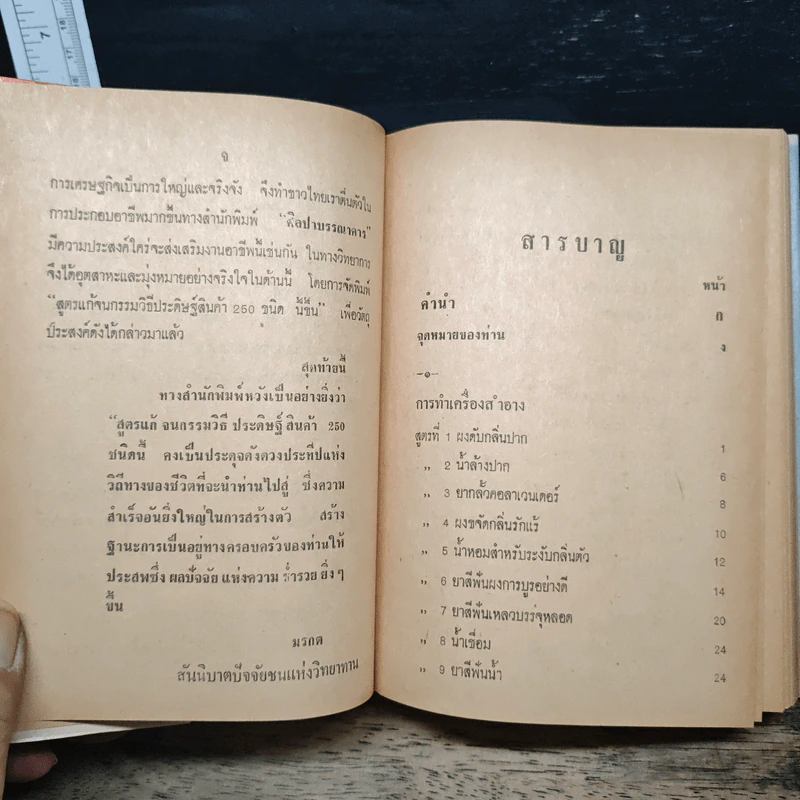 จ
การเศรษฐกิจเป็นการใหญ่และจริงจัง จึงทำชาวไทยเราตื่นตัวใน
การประกอบอาชีพมากขึ้นทางสำนักพิมพ์ "ศิลปาบรรณาคาร"
มีความประสงค์ใคร่จะส่งเสริมงานอาชีพนี้เช่นกัน ในทางวิทยาการ
จึงได้อุตสาหะและมุ่งหมายอย่างจริงใจในด้านนี้ โดยการจัดพิมพ์
"สูตรแก้จนกรรมวิธีประดิษฐ์สินค้า 250 ชนิด นี้ขึ้น" เพื่อวัตถุ
ประสงค์ดังได้กล่าวมาแล้ว
สุดท้ายนี้
ทางสำนักพิมพ์หวังเป็นอย่างยิ่งว่า
"สูตรแก้ จนกรรมวิธี ประดิษฐ์ สินค้า 250
ชนิดนี้ คงเป็นประดุจดังดวงประทีปแห่ง
วิถีทางของชีวิตที่จะนำท่านไปสู่ ซึ่งความ
สำเร็จอันยิ่งใหญ่ในการสร้างตัว สร้าง
ฐานะการเป็นอยู่ทางครอบครัวของท่านให้
ประสพซึ่ง ผลปัจจัย แห่งความ ร่ำรวย ยิ่ง ๆ
ขึ้น
มรกต
สันนิบาตปัจจัยชนแห่งวิทยาทาน
สารบาญ
หน้า
คำนำ ก
จุดหมายของท่าน ง
—๑—
การทำเครื่องสำอาง
สูตรที่ 1 ผงดับกลิ่นปาก 1
,, 2 น้ำล้างปาก 6
,, 3 ยากลั้วคอลาเวนเดอร์ 8
,, 4 ผงขจัดกลิ่นรักแร้ 10
,, 5 น้ำหอมสำหรับระงับกลิ่นตัว 12
,, 6 ยาสีฟันผงการบูรอย่างดี 14
,, 7 ยาสีฟันเหลวบรรจุหลอด 20
,, 8 น้ำเชื่อม 24
,, 9 ยาสีฟันน้ำ 24
7
18
17